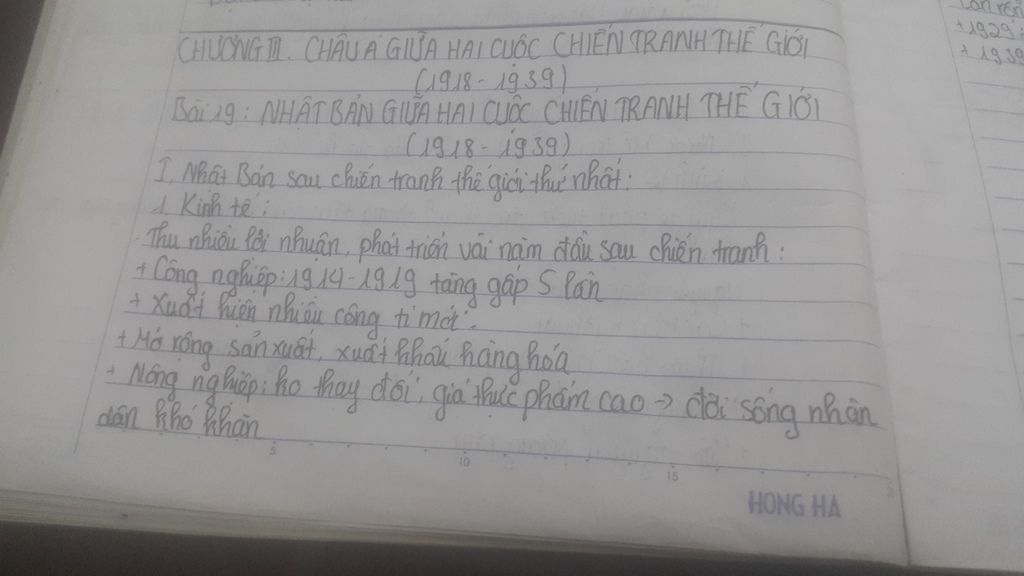 CHƯƠNG III. CHÂU Á GIỮA HAI CUỘC CHIẾN TRANH THẾ GIỚI
(1918 - 1939)
Bài 19: NHẬT BẢN GIỮA HAI CUỘC CHIẾN TRANH THẾ GIỚI
(1918 - 1939)
I. Nhật Bản sau chiến tranh thế giới thứ nhất:
1. Kinh tế:
- Thu nhiều lợi nhuận, phát triển vài năm đầu sau chiến tranh:
+ Công nghiệp: 1914 - 1919 tăng gấp 5 lần
+ Xuất hiện nhiều công ti mới.
+ Mở rộng sản xuất, xuất khẩu hàng hóa
+ Nông nghiệp: ko thay đổi, giá thực phẩm cao → đời sống nhân
dân khó khăn
5 10 15
HONG HA
+ 1929
+ 1939